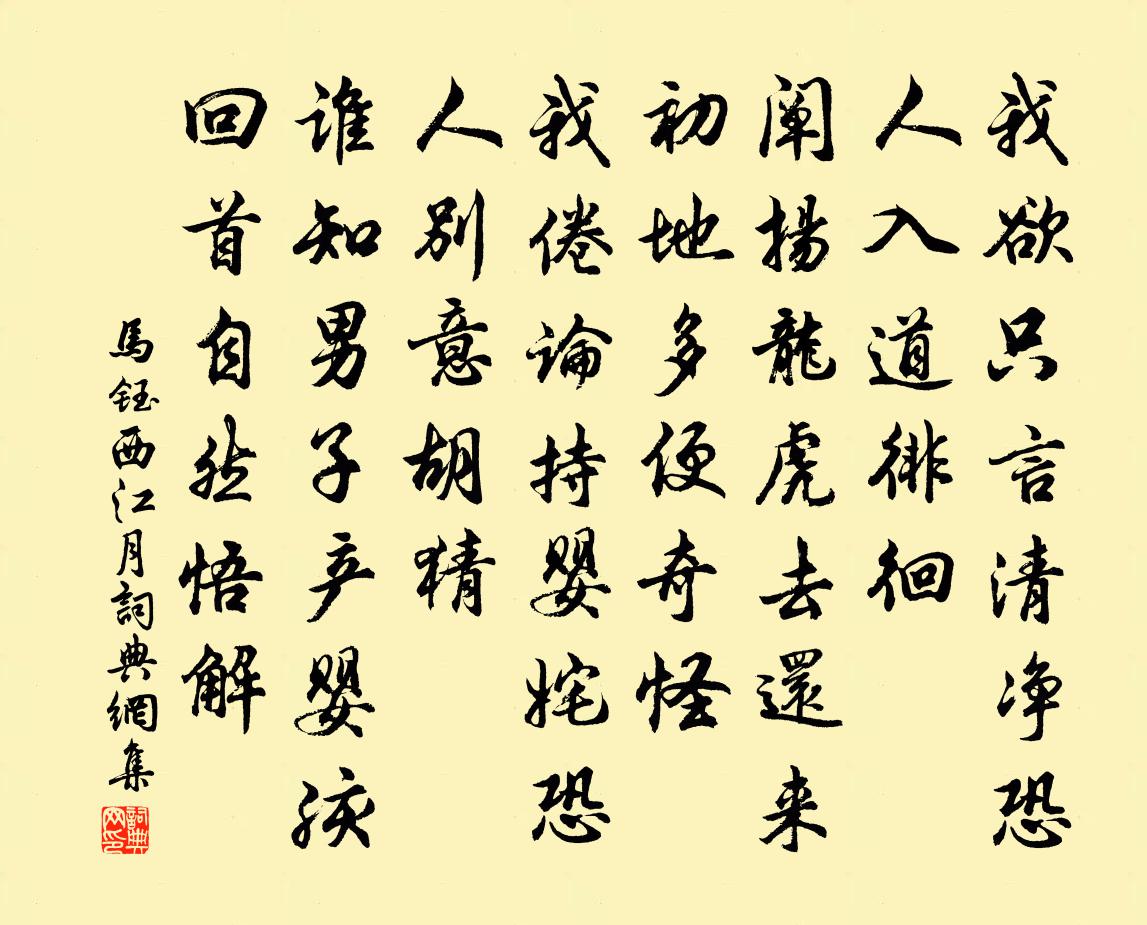 我欲只言清净恐
人入道徘徊
阐揚龍虎去還来
初地多便奇怪
我倦論持嬰姹恐
人别意胡猜
谁知男子产嬰孩
回首自然悟解
馬鈺西江月詞典網集
詞典网印